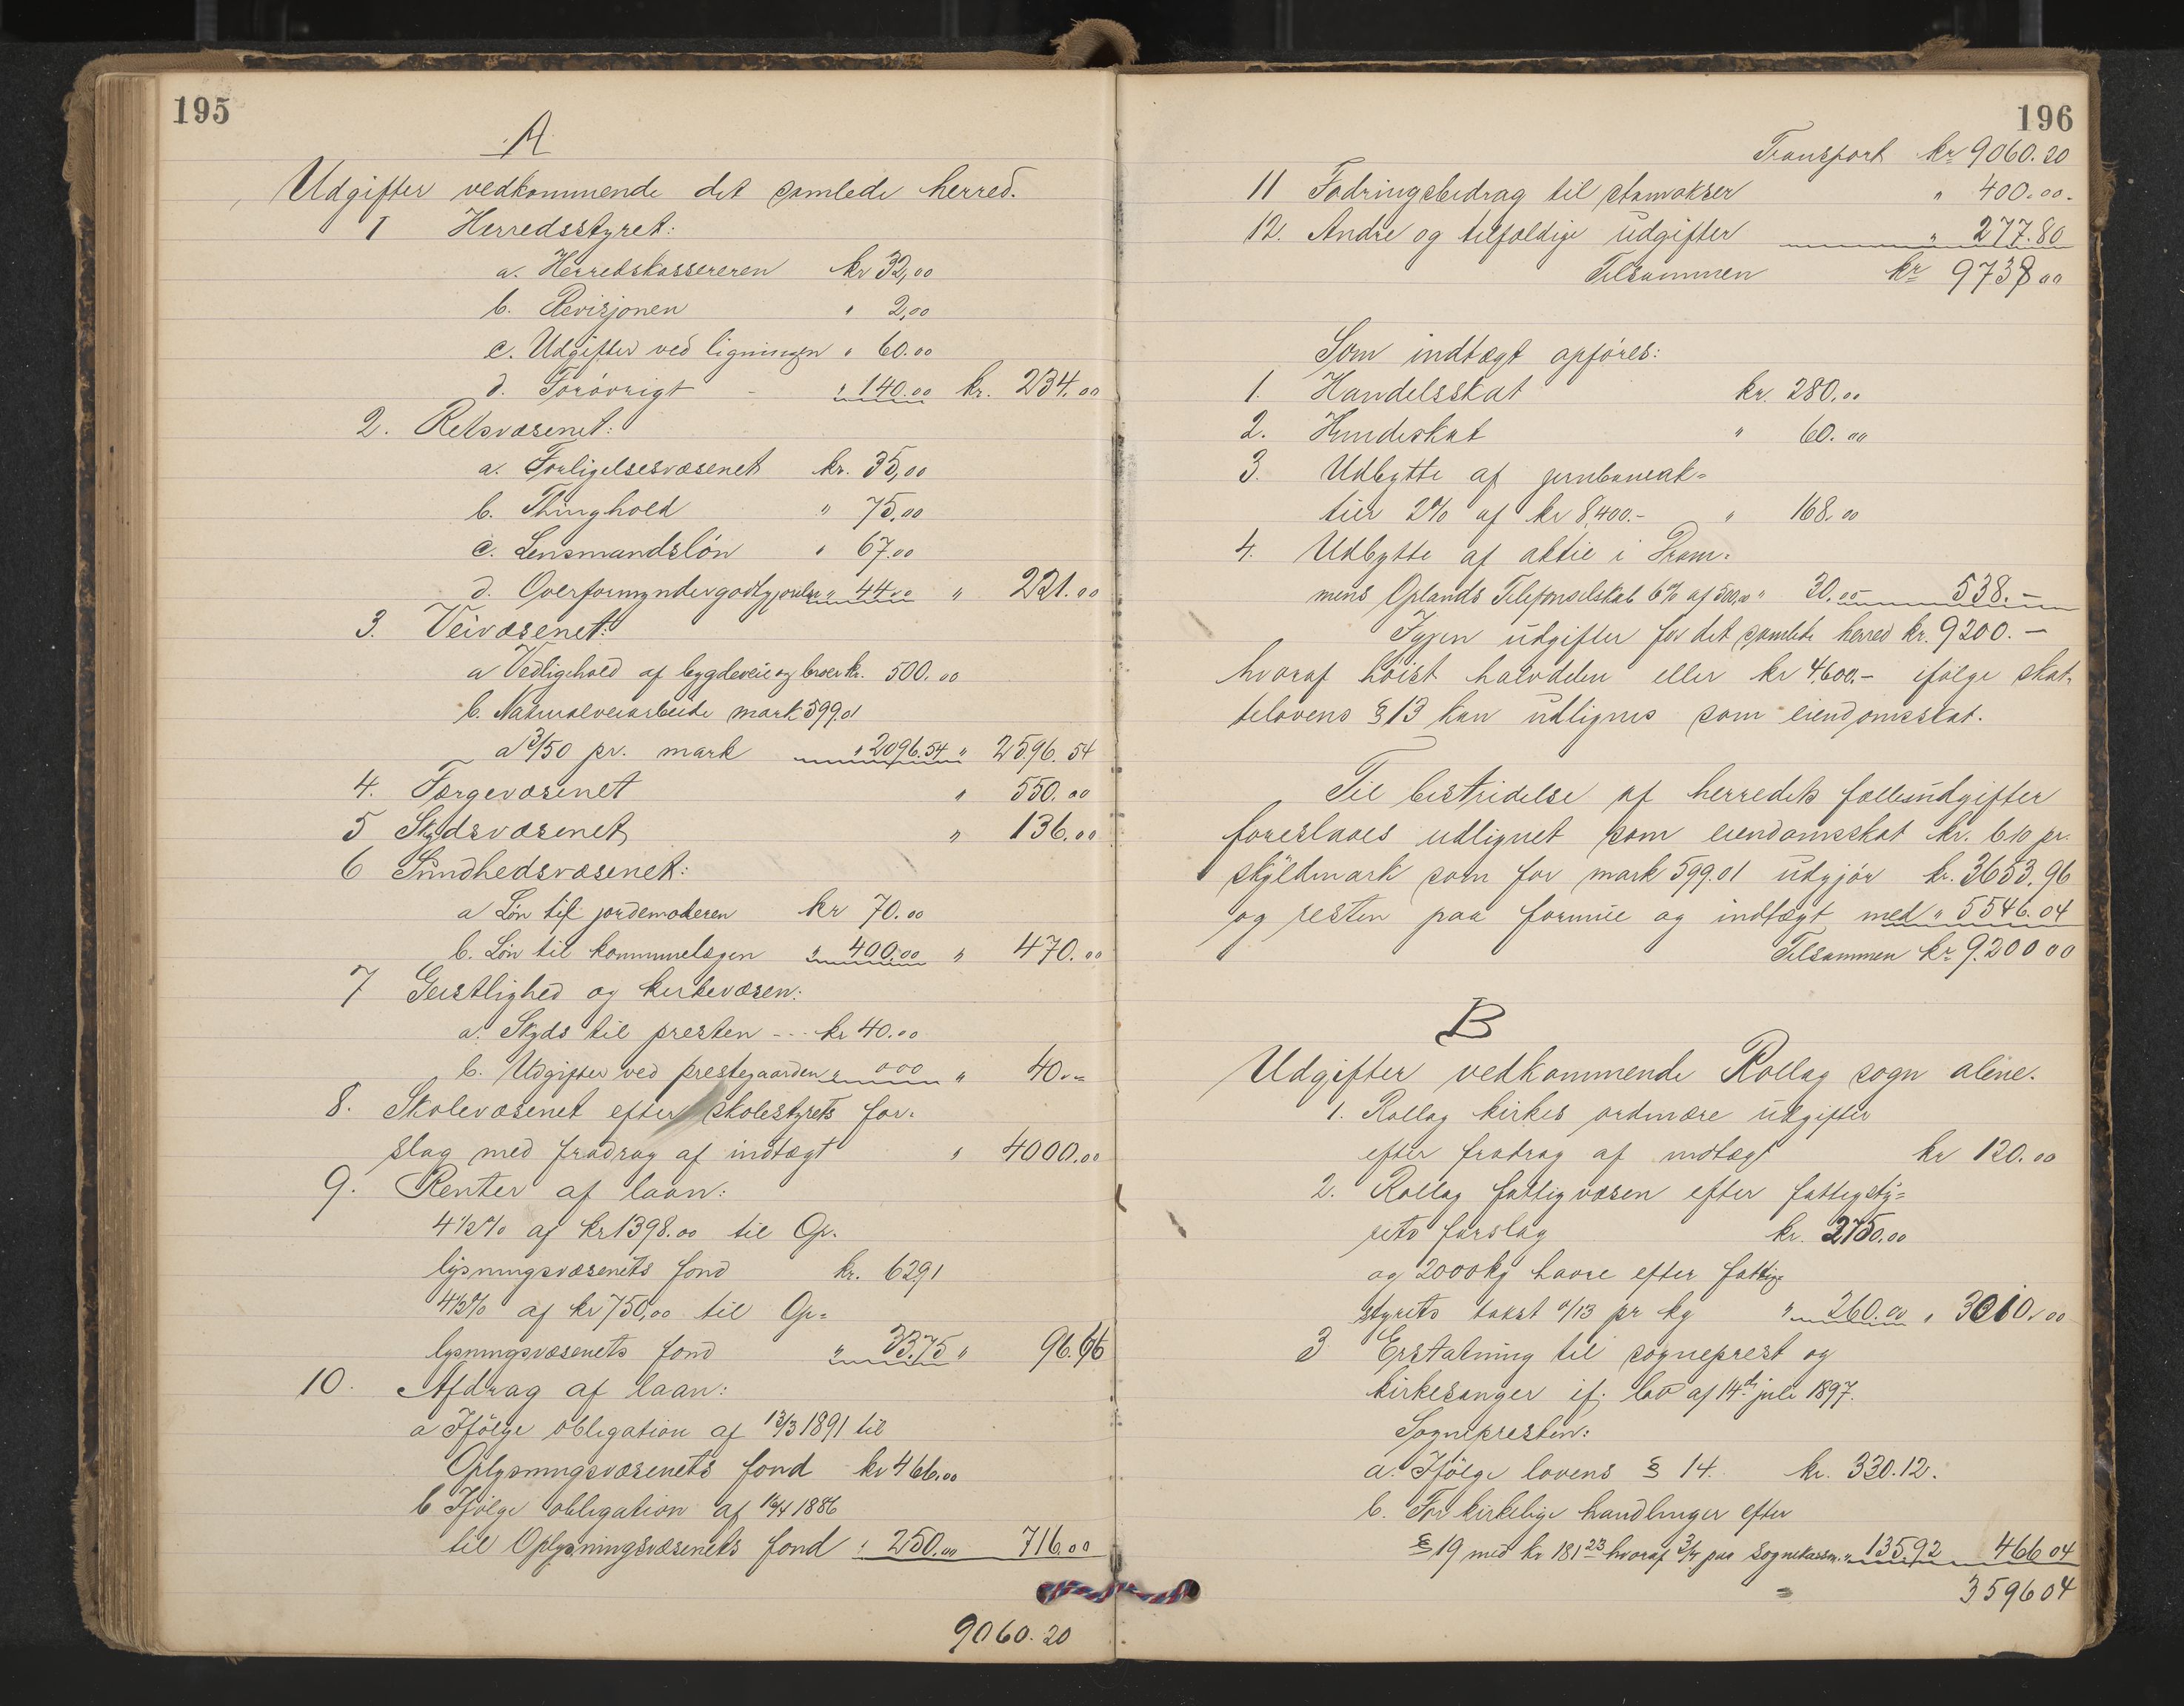 195
A
Udgifter vedkommende det samlede herred.
1 Herredsstyret:
a. Herredskassereren kr 32,00
b. Revisjonen " 2,00
c. Udgifter ved ligningen " 60.00
d. Forøvrigt - " 140.00 kr. 234.00
2. Retsvæsenet:
a. Forligelsesvæsenet kr. 35,00
b. Thinghold " 75,00
c. Lensmandsløn " 67.00
d. Overformyndergodtgjørelse " 44.00 " 221.00
3. Veivæsenet:
a Vedligehold af bygdeveie og broer kr. 500.00
b. Naturalveiarbeide mark 599.01
a 3/50 pr. mark " 2096.54 " 2596.54
4. Færgevæsenet " 550.00
5 Skydsvæsenet " 136.00
6 Sundhedsvæsenet:
a Løn til jordemoderen kr 70.00
b. Løn til kommunelægen " 400.00 " 470.00
7 Geistlighed og kirkevæsen:
a. Skyds til presten --- kr 40.00
b. Udgifter ved prestegaarden " 000 " 40.-
8. Skolevæsenet efter skolestyrets for-
slag med fradrag af indtægt " 4000.00
9. Renter af laan:
4 1/2 % af kr 1398.00 til Op-
lysningsvæsenets fond kr. 62,91
4 1/2 % af kr 750,00 til Op=
lysningsvæsenets fond " 33.75 " 96.66
10. Afdrag af laan:
a Ifølge obligation af 13/3 1891 til
Oplysningsvæsenets fond kr 466.00
b Ifølge obligation af 16/4 1886
til Oplysningsvæsenets fond " 250.00 716.00
9060.20
196
Transport kr 9060.20
11 Fodringsbidrag til stamokser " 400.00.
12. Andre og tilfældige udgifter " 277.80
Tilsammen kr 9738 00
Som indtægt opføres:
1. Handelsskat kr. 280.00
2. Hundeskat " 60.00
3. Udbytte af jernbaneak=
tier 2% af kr 8,400.- " 168.00
4. Udbytte af aktie i Dram-
mens Oplands Telefonselskab 6% af 500,00 " 30.00 538.-
Igjen udgifter for det samlede herred kr. 9200.-
hvoraf høist halvdelen eller kr 4,600.- ifølge skat-
telovens § 13 kan udlignes som eiendomsskat.
Til bestridelse af herredets fællesudgifter
foreslaaes udlignet som eiendomsskat kr. 6.10 pr.
skyldmark som for mark 599.01 udgjør kr. 3653.96
og resten paa formue og indtægt med " 5546.04
Tilsammen kr 9.200 00
B
Udgifter vedkommende Rollag sogn alene.
1. Rollag kirkes ordinære udgifter
efter fradrag af indtægt kr 120.00
2. Rollag fattigvæsen efter fattigsty=
rets forslag kr. 2750.00
og 2000 kg havre efter fattig-
styrets takst 0/13 pr kg " 260.00 " 3010.00
3 Erstatning til sogneprest og
kirkesanger if. lov af 14de juli 1897.
Sognepresten:
a. Ifølge lovens § 14. kr. 330.12.
b. For kirkelige handlinger efter
§ 19 med kr 181 23 hvoraf 3/4 paa Sognekassen " 135.92 466 04
3596 04